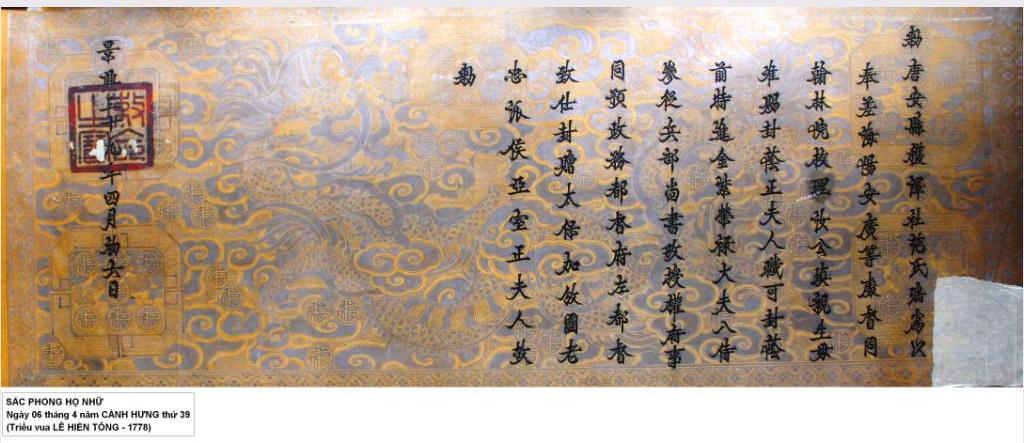 勅唐安縣穫澤社氏爲以
奉差海陽安廣等處督同
翰林院校理汝公瑱親生母
準賜封蔭正夫人職可封蔭
前特進金紫榮祿大夫入侍
參從兵部尚書權府事
同預政務都督府左都督
致仕封贈太保加國老
忠派侯亞室正夫人故
勅
景興三十九年四月初六日
SẮC PHONG HỌ NHỮ
Ngày 06 tháng 4 năm CẢNH HƯNG thứ 39
(Triều vua LÊ HIỂN TÔNG - 1778)